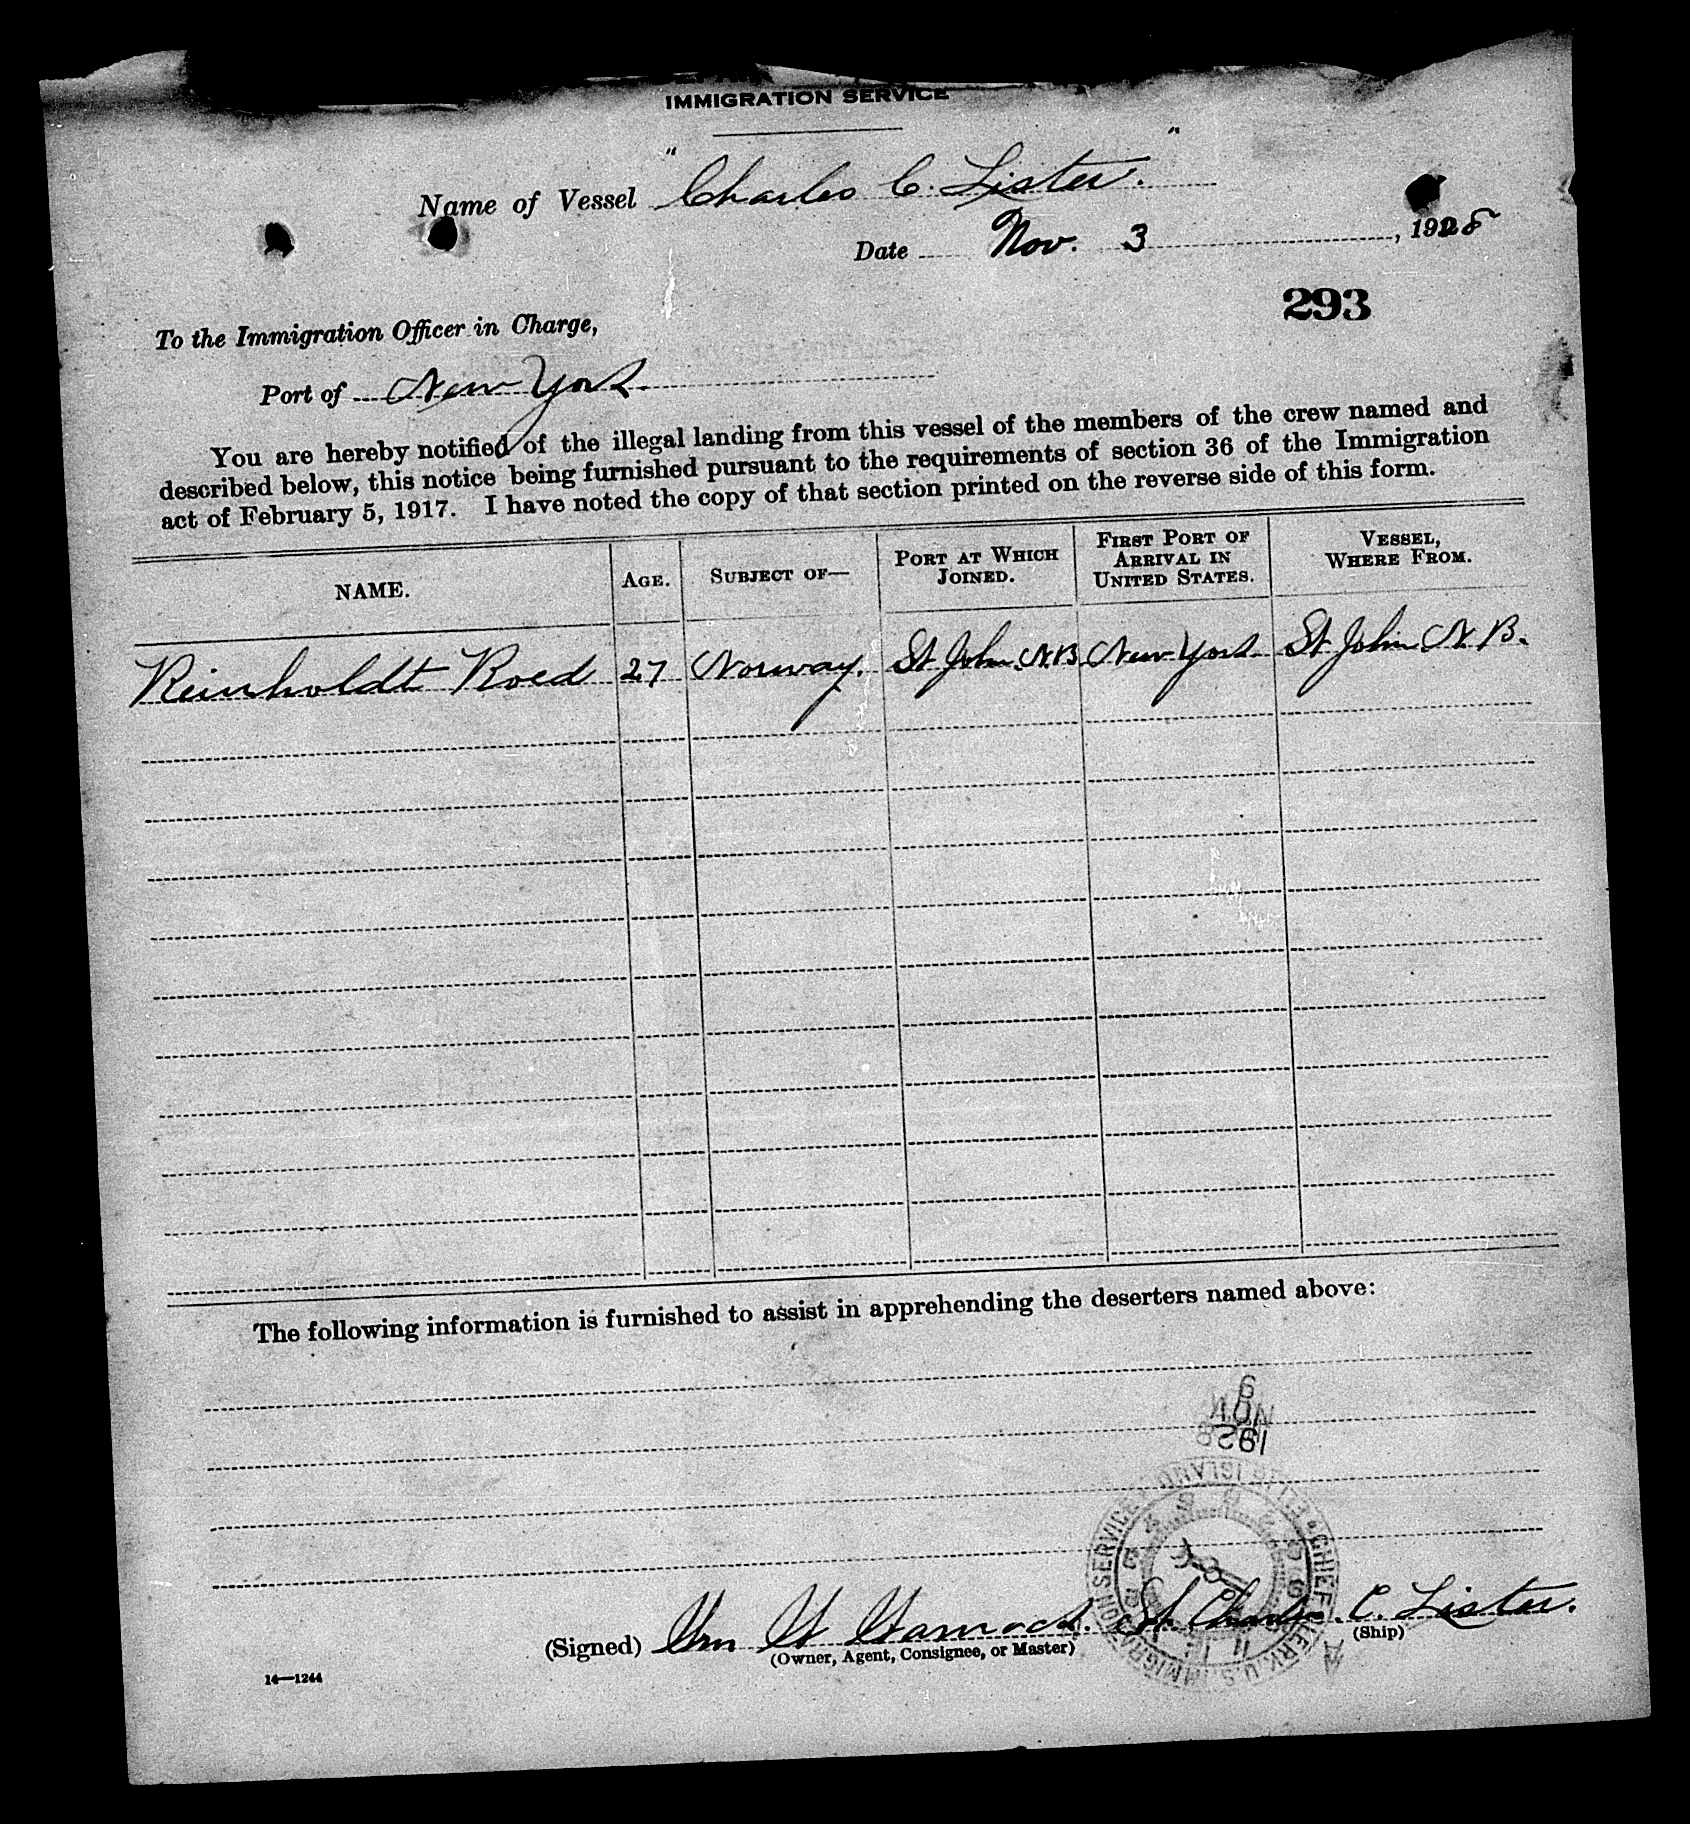 IMMIGRATION SERVICE
Name of Vessel "Charles C. Lister."
Date Nov. 3, 1928
293
To the Immigration Officer in Charge,
Port of New York.
You are hereby notified of the illegal landing from this vessel of the members of the crew named and
described below, this notice being furnished pursuant to the requirements of section 36 of the Immigration
act of February 5, 1917. I have noted the copy of that section printed on the reverse side of this form.
NAME. AGE. SUBJECT OF— PORT AT WHICH JOINED. FIRST PORT OF ARRIVAL IN UNITED STATES. VESSEL, WHERE FROM.
Reinholdt Roed 27 Norway. St John N.B. New York St John N.B.
The following information is furnished to assist in apprehending the deserters named above:
9
NOV
1928
CHIEF CLERK U.S. IMMIGRATION SERVICE ELLIS ISLAND
(Signed) Wm H C. Lister.
(Owner, Agent, Consignee, or Master) (Ship)
14—1244